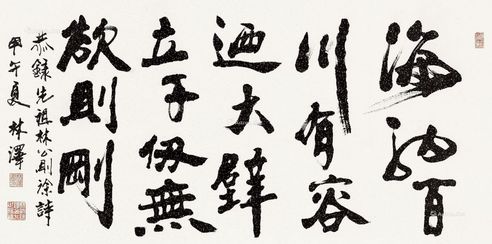 海納百
川有容
迺大壁
立千仞無
欲則剛
恭錄先祖林公則徐詩
甲午夏 林澤